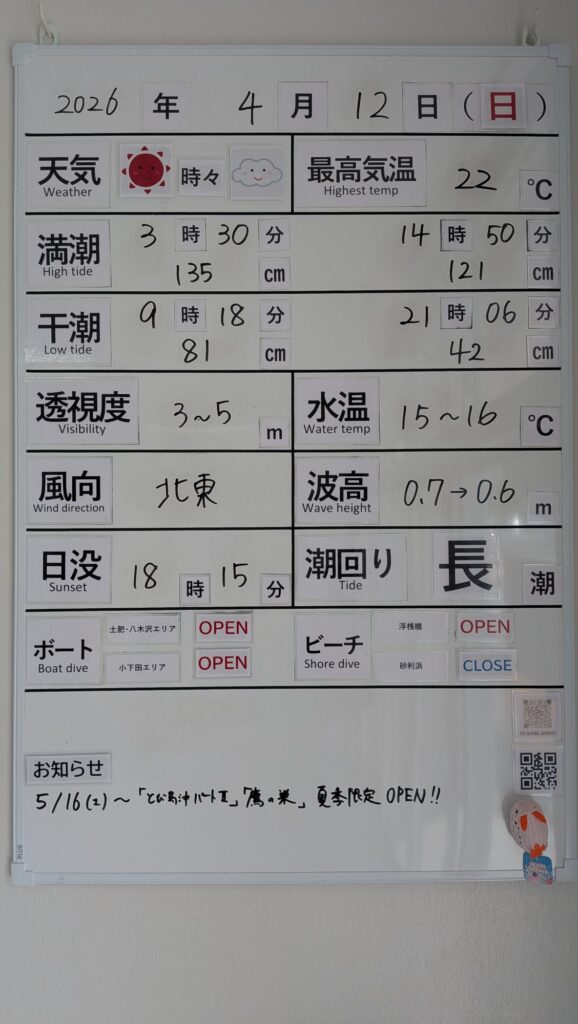 2026 年 4 月 12 日 (日)
天気 時々
Weather
最高気温 22 ℃
Highest temp
満潮 3 時 30 分 14 時 50 分
High tide 135 cm 121 cm
干潮 9 時 18 分 21 時 06 分
Low tide 81 cm 42 cm
透視度 3~5 m
Visibility
水温 15~16 ℃
Water temp
風向 北東
Wind direction
波高 0.7→0.6 m
Wave height
日没 18 時 15 分
Sunset
潮回り 長 潮
Tide
ボート
Boat dive
土肥・八木沢エリア OPEN
小下田エリア OPEN
ビーチ
Shore dive
浮桟橋 OPEN
砂利浜 CLOSE
お知らせ
5/16(土)~「とび島沖パートⅡ」「鷹の巣」夏季限定 OPEN!!
PLUS